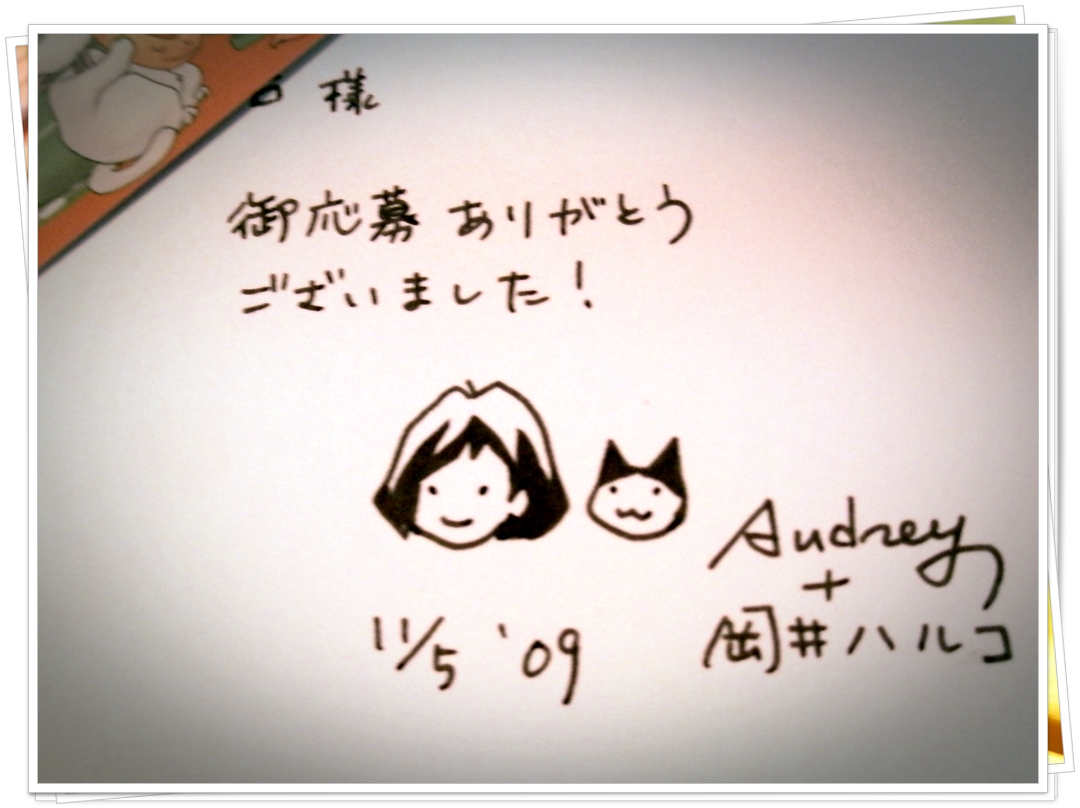 様
御応募 ありがとう
ございました!
Audrey
+
岡井ハルコ
11/5 '09